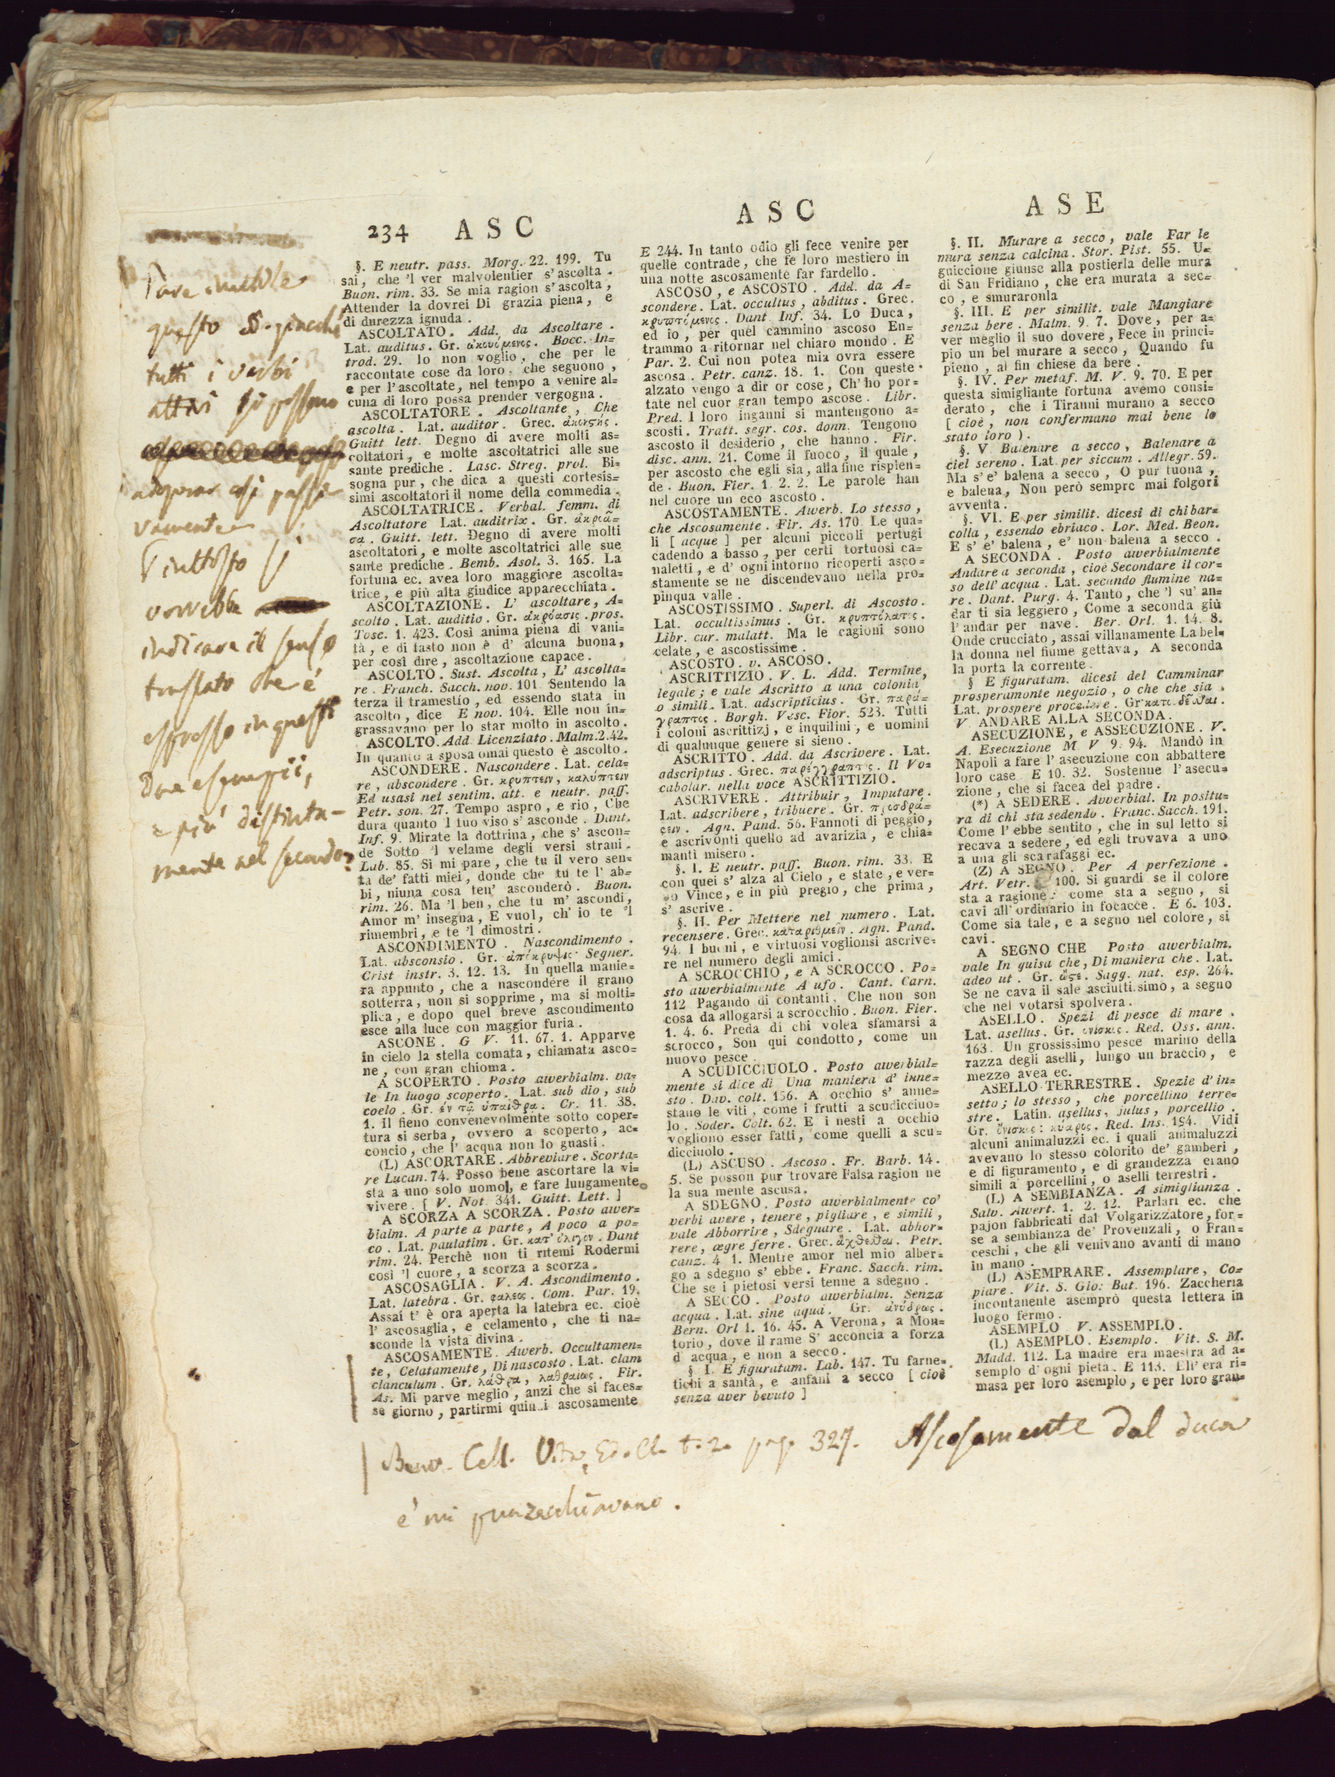 234 ASC
§. E neutr. pass. Morg. 22. 199. Tu
sai, che 'l ver malvolentier s'ascolta.
Buon. rim. 33. Se mia ragion s'ascolta,
Attender la dovrei Di grazia piena, e
di durezza ignuda.
ASCOLTATO. Add. da Ascoltare.
Lat. auditus. Gr. ἀκουόμενος. Bocc. In=
trod. 29. Io non voglio, che per le
raccontate cose da loro, che seguono,
e per l'ascoltate, nel tempo a venire al=
cuna di loro possa prender vergogna.
ASCOLTATORE. Ascoltante, Che
ascolta. Lat. auditor. Grec. ἀκουστής.
Guitt lett. Degno di avere molti as=
coltatori, e molte ascoltatrici alle sue
sante prediche. Lasc. Streg. prol. Bi=
sogna pur, che dica a questi cortesis=
simi ascoltatori il nome della commedia.
ASCOLTATRICE. Verbal. femm. di
Ascoltatore Lat. auditrix. Gr.
Guitt. lett. Degno di avere molti
ascoltatori, e molte ascoltatrici alle sue
sante prediche. Bemb. Asol. 3. 165. La
fortuna ec. avea loro maggiore ascolta=
trice, e più alta giudice apparecchiata.
ASCOLTAZIONE. L' ascoltare, A=
scolto. Lat. auditio. Gr. ἀκρόασις. pros.
Tosc. 1. 423. Così anima piena di vani=
tà, e di fasto non è d' alcuna buona,
per così dire, ascoltazione capace.
ASCOLTO. Sust. Ascolta, L' ascolta=
re. Franch. Sacch. nov. 101. Sentendo la
terza il tramestio, ed essendo stata in
ascolto, dice E nov. 104. Elle non in=
grassavano per lo star molto in ascolto.
ASCOLTO. Add. Licenziato. Malm. 2. 42.
In quanto a sposa omai questo è ascolto.
ASCONDERE. Nascondere. Lat. cela=
re, abscondere. Gr. κρυπτειν, καλύπτειν
Ed usasi nel sentim. att. e neutr. pass.
Petr. son. 27. Tempo aspro, e rio, Che
dura quanto 'l tuo viso s' asconde. Dant.
Inf. 9. Mirate la dottrina, che s' ascon=
de Sotto 'l velame degli versi strani.
Lab. 85. Si mi pare, che tu il vero sen=
ta de' fatti miei, donde che tu te l' ab=
bi, niuna cosa ten' asconderò. Buon.
rim. 26. Ma 'l ben, che tu m' ascondi,
Amor m' insegna, E vuol, ch' io te 'l
rimembri, e te 'l dimostri.
ASCONDIMENTO. Nascondimento.
Lat. absconsio. Gr. ἀπόκρυψις. Segner.
Crist instr. 3. 12. 13. In quella manie=
ra appunto, che a nascondere il grano
sotterra, non si sopprime, ma si molti=
plica, e dopo quel breve ascondimento
esce alla luce con maggior furia.
ASCONE. G V. 11. 67. 1. Apparve
in cielo la stella comata, chiamata asco=
ne, con gran chioma.
A SCOPERTO. Posto avverbialm. va=
le In luogo scoperto. Lat. sub dio, sub
coelo. Gr. ἐν τῷ ὑπαίθρα. Cr. 11. 38.
1. Il fieno convenevolmente sotto coper=
tura si serba, ovvero a scoperto, ac=
concio, che l' acqua non lo guasti.
(L) ASCORTARE. Abbreviare. Scorta=
re Lucan. 74. Posso bene ascortare la vi=
sta a uno solo uomo, e fare lungamente
vivere. [ V. Not. 341. Guitt. Lett. ]
A SCORZA A SCORZA. Posto avver=
bialm. A parte a parte, A poco a po=
co. Lat. paulatim. Gr. κατ' ὀλίγον. Dant
rim. 24. Perchè non ti ritemi Rodermi
così 'l cuore, a scorza a scorza.
ASCOSAGLIA. V. A. Ascondimento.
Lat. latebra. Gr. φωλεὸς. Com. Par. 19.
Assai t' è ora aperta la latebra ec. cioè
l' ascosaglia, e celamento, che ti na=
sconde la vista divina.
ASCOSAMENTE. Avverb. Occultamen=
te, Celatamente, Di nascosto. Lat. clam
clanculum. Gr. λάθρα, λαθραίως. Fir.
As. Mi parve meglio, anzi che si faces=
se giorno, partirmi quindi ascosamente
ASC
E 244. In tanto odio gli fece venire per
quelle contrade, che fe loro mestiero in
una notte ascosamente far fardello.
ASCOSO, e ASCOSTO. Add. da A=
scondere. Lat. occultus, abditus. Grec.
κρυπτόμενος. Dant Inf. 34. Lo Duca,
ed io, per quel cammino ascoso En=
trammo a ritornar nel chiaro mondo. E
Par. 2. Cui non potea mia ovra essere
ascosa. Petr. canz. 18. 1. Con queste
alzato vengo a dir or cose, Ch' ho por=
tate nel cuor gran tempo ascose. Libr.
Pred. I loro inganni si mantengono a=
scosti. Tratt. segr. cos. donn. Tengono
ascosto il desiderio, che hanno. Fir.
disc. ann. 21. Come il fuoco, il quale,
per ascosto che egli sia, alla fine risplen=
de. Buon. Fier. 1. 2. 2. Le parole han
nel cuore un eco ascosto.
ASCOSTAMENTE. Avverb. Lo stesso,
che Ascosamente. Fir. As. 170. Le qua=
li [ acque ] per alcuni piccoli pertugi
cadendo a basso, per certi tortuosi ca=
naletti, e d' ogni intorno ricoperti asco=
stamente se ne discendevano nella pro=
pinqua valle.
ASCOSTISSIMO. Superl. di Ascosto.
Lat. occultissimus. Gr. κρυπτότατος.
Libr. cur. malatt. Ma le cagioni sono
celate, e ascostissime.
ASCOSTO. v. ASCOSO.
ASCRITTIZIO. V. L. Add. Termine
legale; e vale Ascritto a una colonia
o simili. Lat. adscripticius. Gr. παρά=
γραπτος. Borgh. Vesc. Fior. 523. Tutti
i coloni ascrittizj, e inquilini, e uomini
di qualunque genere si sieno.
ASCRITTO. Add. da Ascrivere. Lat.
adscriptus. Grec. παρέγγραπτος. Il Vo=
cabolar. nella voce ASCRITTIZIO.
ASCRIVERE. Attribuir, Imputare.
Lat. adscribere, tribuere. Gr.
Agn. Pand. 56. Fannoti di peggio,
e ascrivonti quello ad avarizia, e chia=
manti misero.
§. I. E neutr. pass. Buon. rim. 33. E
con quei s' alza al Cielo, e state, e ver=
no Vince, e in più pregio, che prima,
s' ascrive.
§. II. Per Mettere nel numero. Lat.
recensere. Grec. καταριθμεῖν. Agn. Pand.
94. I buoni, e virtuosi voglionsi ascrive=
re nel numero degli amici.
A SCROCCHIO, e A SCROCCO. Po=
sto avverbialmente A ufo. Cant. Carn.
112 Pagando di contanti, Che non son
cosa da allogarsi a scrocchio. Buon. Fier.
1. 4. 6. Preda di chi volea sfamarsi a
scrocco, Son qui condotto, come un
nuovo pesce.
A SCUDICCIUOLO. Posto avverbial=
mente si dice di Una maniera d' inne=
sto. Dav. colt. 156. A occhio s' anne=
stano le viti, come i frutti a scudicciuo=
lo. Soder. Colt. 62. E i nesti a occhio
vogliono esser fatti, come quelli a scu=
dicciuolo.
(L) ASCUSO. Ascoso. Fr. Barb. 14.
5. Se posson pur trovare Falsa ragion ne
la sua mente ascusa.
A SDEGNO. Posto avverbialmente co'
verbi avere, tenere, pigliare, e simili,
vale Abborrire, Sdegnare. Lat. abhor=
rere, ægre ferre. Grec. ἄχθεσθαι. Petr.
canz. 4 1. Mentre amor nel mio alber=
go a sdegno s' ebbe. Franc. Sacch. rim.
Che se i pietosi versi tenne a sdegno.
A SECCO. Posto avverbialm. Senza
acqua. Lat. sine aqua. Gr. ἀνύδρως.
Bern. Orl 1. 16. 45. A Verona, a Mon=
torio, dove il rame S' acconcia a forza
d' acqua, e non a secco.
§ I. E figuratam. Lab. 147. Tu farne=
tichi a santà, e anfani a secco [ cioè
senza aver bevuto ]
ASE
§. II. Murare a secco, vale Far le
mura senza calcina. Stor. Pist. 55. U=
guiccione giunse alla postierla delle mura
di San Fridiano, che era murata a sec=
co, e smuraronla
§. III. E per similit. vale Mangiare
senza bere. Malm. 9. 7. Dove, per a=
ver meglio il suo dovere, Fece in princi=
pio un bel murare a secco, Quando fu
pieno, al fin chiese da bere.
§. IV. Per metaf. M. V. 9. 70. E per
questa simigliante fortuna avemo consi=
derato, che i Tiranni murano a secco
[ cioè, non confermano mai bene lo
stato loro ).
§. V Balenare a secco, Balenare a
ciel sereno. Lat. per siccum. Allegr. 59.
Ma s' e' balena a secco, O pur tuona,
e balena, Non però sempre mai folgori
avventa.
§. VI. E per similit. dicesi di chi bar=
colla, essendo ebriaco. Lor. Med. Beon.
E s' e' balena, e' non balena a secco.
A SECONDA. Posto avverbialmente
Andare a seconda, cioè Secondare il cor=
so dell' acqua. Lat. secundo flumine na=
re. Dant. Purg. 4. Tanto, che 'l su' an=
dar ti sia leggiero, Come a seconda giù
l' andar per nave. Ber. Orl. 1. 14. 8.
Onde crucciato, assai villanamente La bel=
la donna nel fiume gettava, A seconda
la porta la corrente.
§ E figuratam. dicesi del Camminar
prosperamente negozio, o che che sia.
Lat. prospere procedere. Gr.
V. ANDARE ALLA SECONDA.
ASECUZIONE, e ASSECUZIONE. V.
A. Esecuzione M V 9. 94. Mandò in
Napoli a fare l' asecuzione con abbattere
loro case E 10. 32. Sostenne l' asecu=
zione, che si facea del padre.
(*) A SEDERE. Avverbial. In positu=
ra di chi sta sedendo. Franc. Sacch. 191.
Come l' ebbe sentito, che in sul letto si
recava a sedere, ed egli trovava a uno
a una gli scarafaggi ec.
(Z) A SEGNO. Per A perfezione.
Art. Vetr. 100. Si guardi se il colore
sta a ragione: come sta a segno, si
cavi all' ordinario in focacce. E 6. 103.
Come sia tale, e a segno nel colore, si
cavi.
A SEGNO CHE Posto avverbialm.
vale In guisa che, Di maniera che. Lat.
adeo ut. Gr. ὥστε. Sagg. nat. esp. 264.
Se ne cava il sale asciuttissimo, a segno
che nel votarsi spolvera.
ASELLO. Spezi di pesce di mare.
Lat. asellus. Gr. ὀνίσκος. Red. Oss. ann.
163. Un grossissimo pesce marino della
razza degli aselli, lungo un braccio, e
mezzo avea ec.
ASELLO TERRESTRE. Spezie d' in=
setto; lo stesso, che porcellino terre=
stre. Latin. asellus, julus, porcellio.
Gr. ὀνίσκος: κύαμος. Red. Ins. 154. Vidi
alcuni animaluzzi ec. i quali animaluzzi
avevano lo stesso colorito de' gamberi,
e di figuramento, e di grandezza erano
simili a' porcellini, o aselli terrestri.
(L) A SEMBIANZA. A simiglianza.
Salv. Avvert. 1. 2. 12. Parlari ec. che
pajon fabbricati dal Volgarizzatore, for=
se a sembianza de' Provenzali, o Fran=
ceschi, che gli venivano avanti di mano
in mano.
(L) ASEMPRARE. Assemplare, Co=
piare. Vit. S. Gio: Bat. 196. Zaccheria
incontanente asemprò questa lettera in
luogo fermo.
ASEMPLO V. ASSEMPLO.
(L) ASEMPLO. Esemplo. Vit. S. M.
Madd. 112. La madre era maestra ad a=
semplo d' ogni pieta. E 113. Ell' era ri=
masa per loro asemplo, e per loro gran=
Pare inutile
questo §. giacché
tutti i verbi
attivi si possono
adoprar così passi=
vamente.
Piuttosto si
vorrebbe
indicare il senso
traslato che è
espresso in questi
due esempii,
e più distinta-
mente nel secondo
Benv. Cell. Vita, Ediz. t. 2. pag. 327. Ascosamente dal duca
e' mi punzecchiavano.